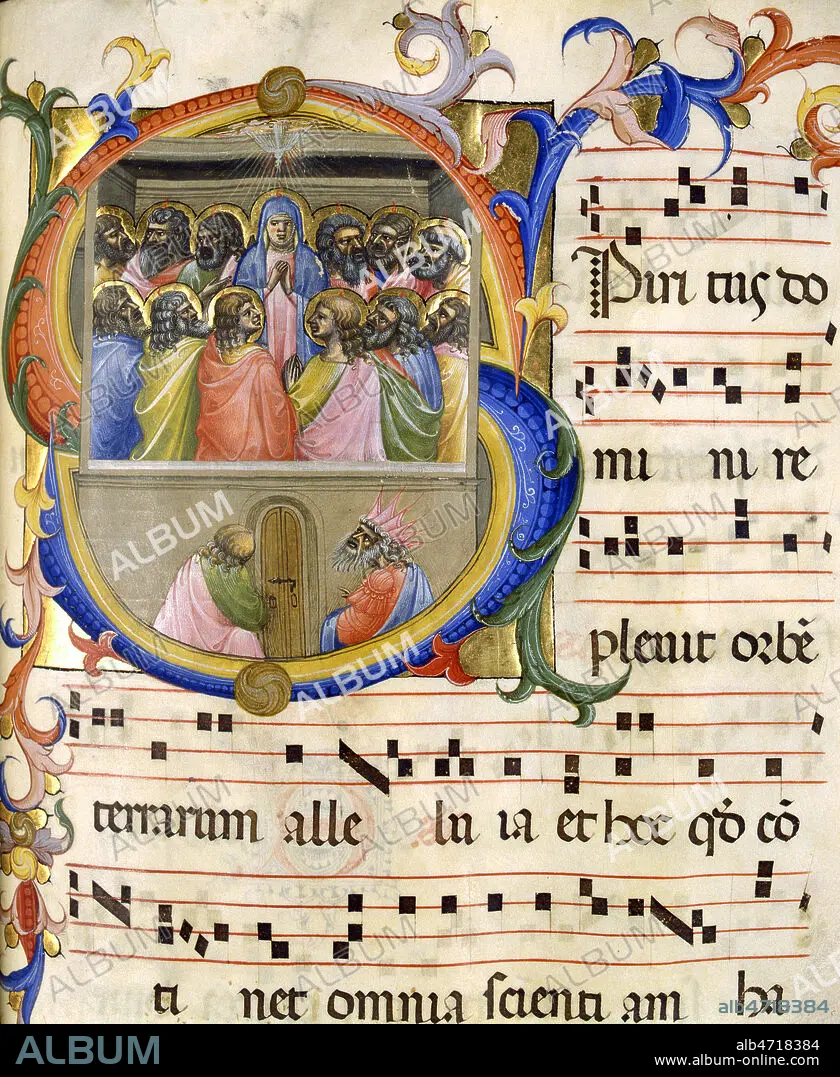 Piri tus do
mi ni re
pleuit orbē
terrarum alle lu ia et hoc qđ cō
ti net omnia scienti am ha
ALBUM
alb4718384
ALBUM
alb4718384
www.album-online.com